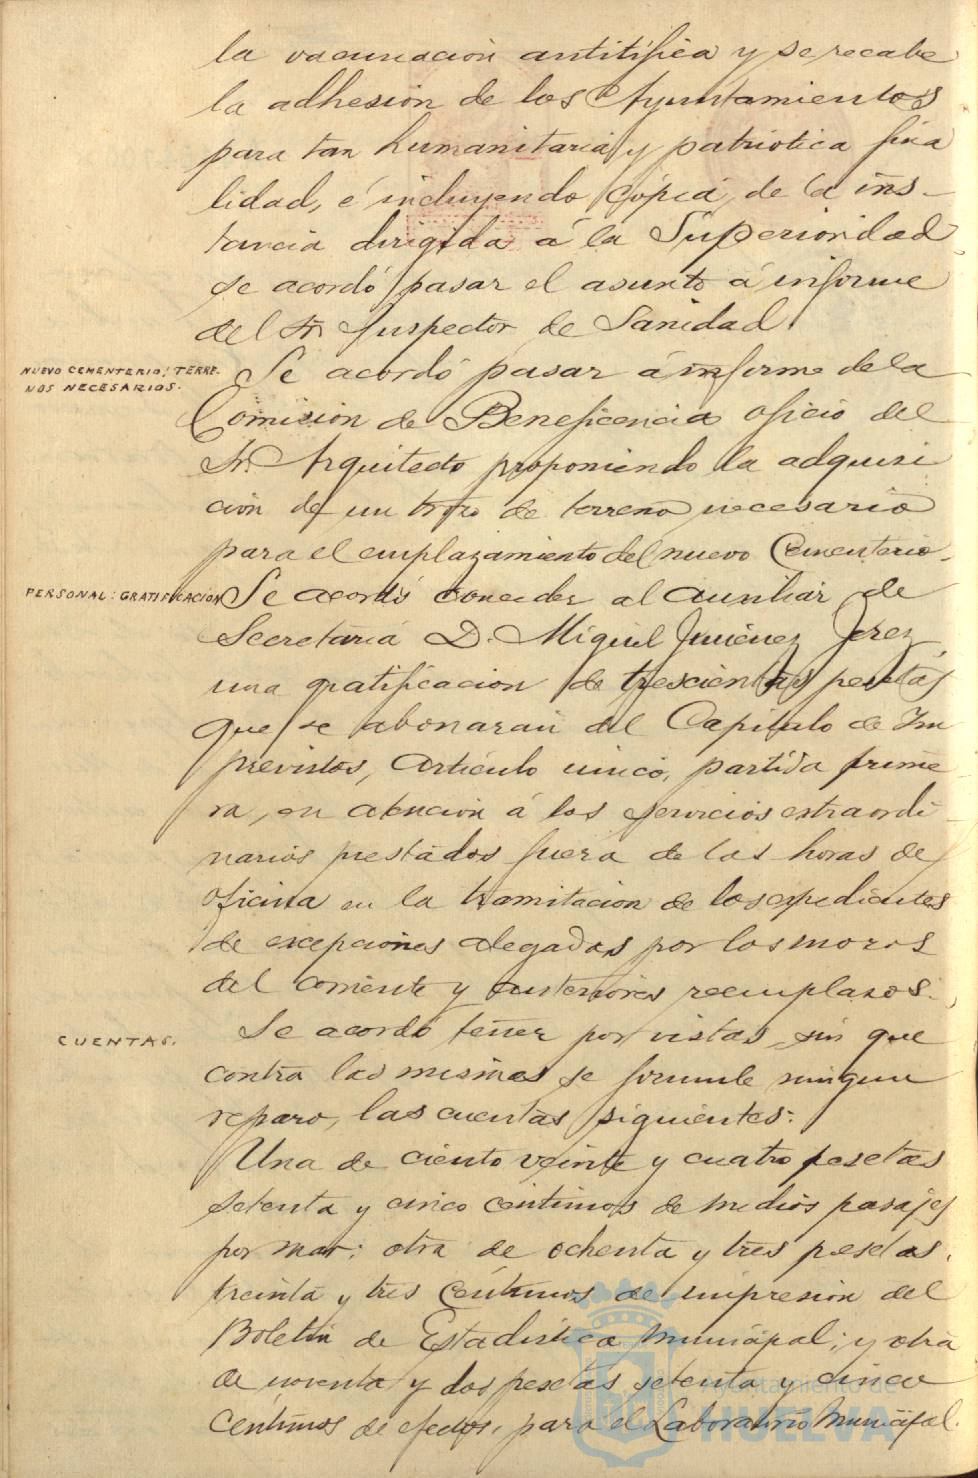 la vacunación antitífica y se recabe
la adhesión de los Ayuntamientos
para tan humanitaria y patriótica fina
lidad, é incluyendo copia de la ins-
tancia dirigida á la Superioridad,
se acordó pasar el asunto á informe
del Sr. Inspector de Sanidad.
NUEVO CEMENTERIO: TERRE-
NOS NECESARIOS.
Se acordó pasar á informe de la
Comisión de Beneficencia oficio del
Sr. Arquitecto proponiendo la adquisi
ción de un trozo de terreno necesario
para el emplazamiento del nuevo Cementerio.
PERSONAL: GRATIFICACIÓN
Se acordó conceder al auxiliar de
Secretaría D. Miguel Jiménez Jerez,
una gratificación de trescientas pesetas
que se abonarán del Capítulo de Im
previstos, artículo único, partida prime
ra, en atención á los servicios extraordi
narios prestados fuera de las horas de
oficina en la tramitación de los expedientes
de excepciones alegadas por los mozos
del corriente y anteriores reemplazos.
CUENTAS.
Se acordó tener por vistas, sin que
contra las mismas se formule ningun
reparo, las cuentas siguientes:
Una de ciento veinte y cuatro pesetas
setenta y cinco céntimos de medios pasajes
por mar; otra de ochenta y tres pesetas,
treinta y tres céntimos de impresión del
Boletín de Estadística municipal; y otra
de noventa y dos pesetas setenta y cinco
céntimos de efectos, para el Laboratorio Municipal.
Ayuntamiento de
HUELVA